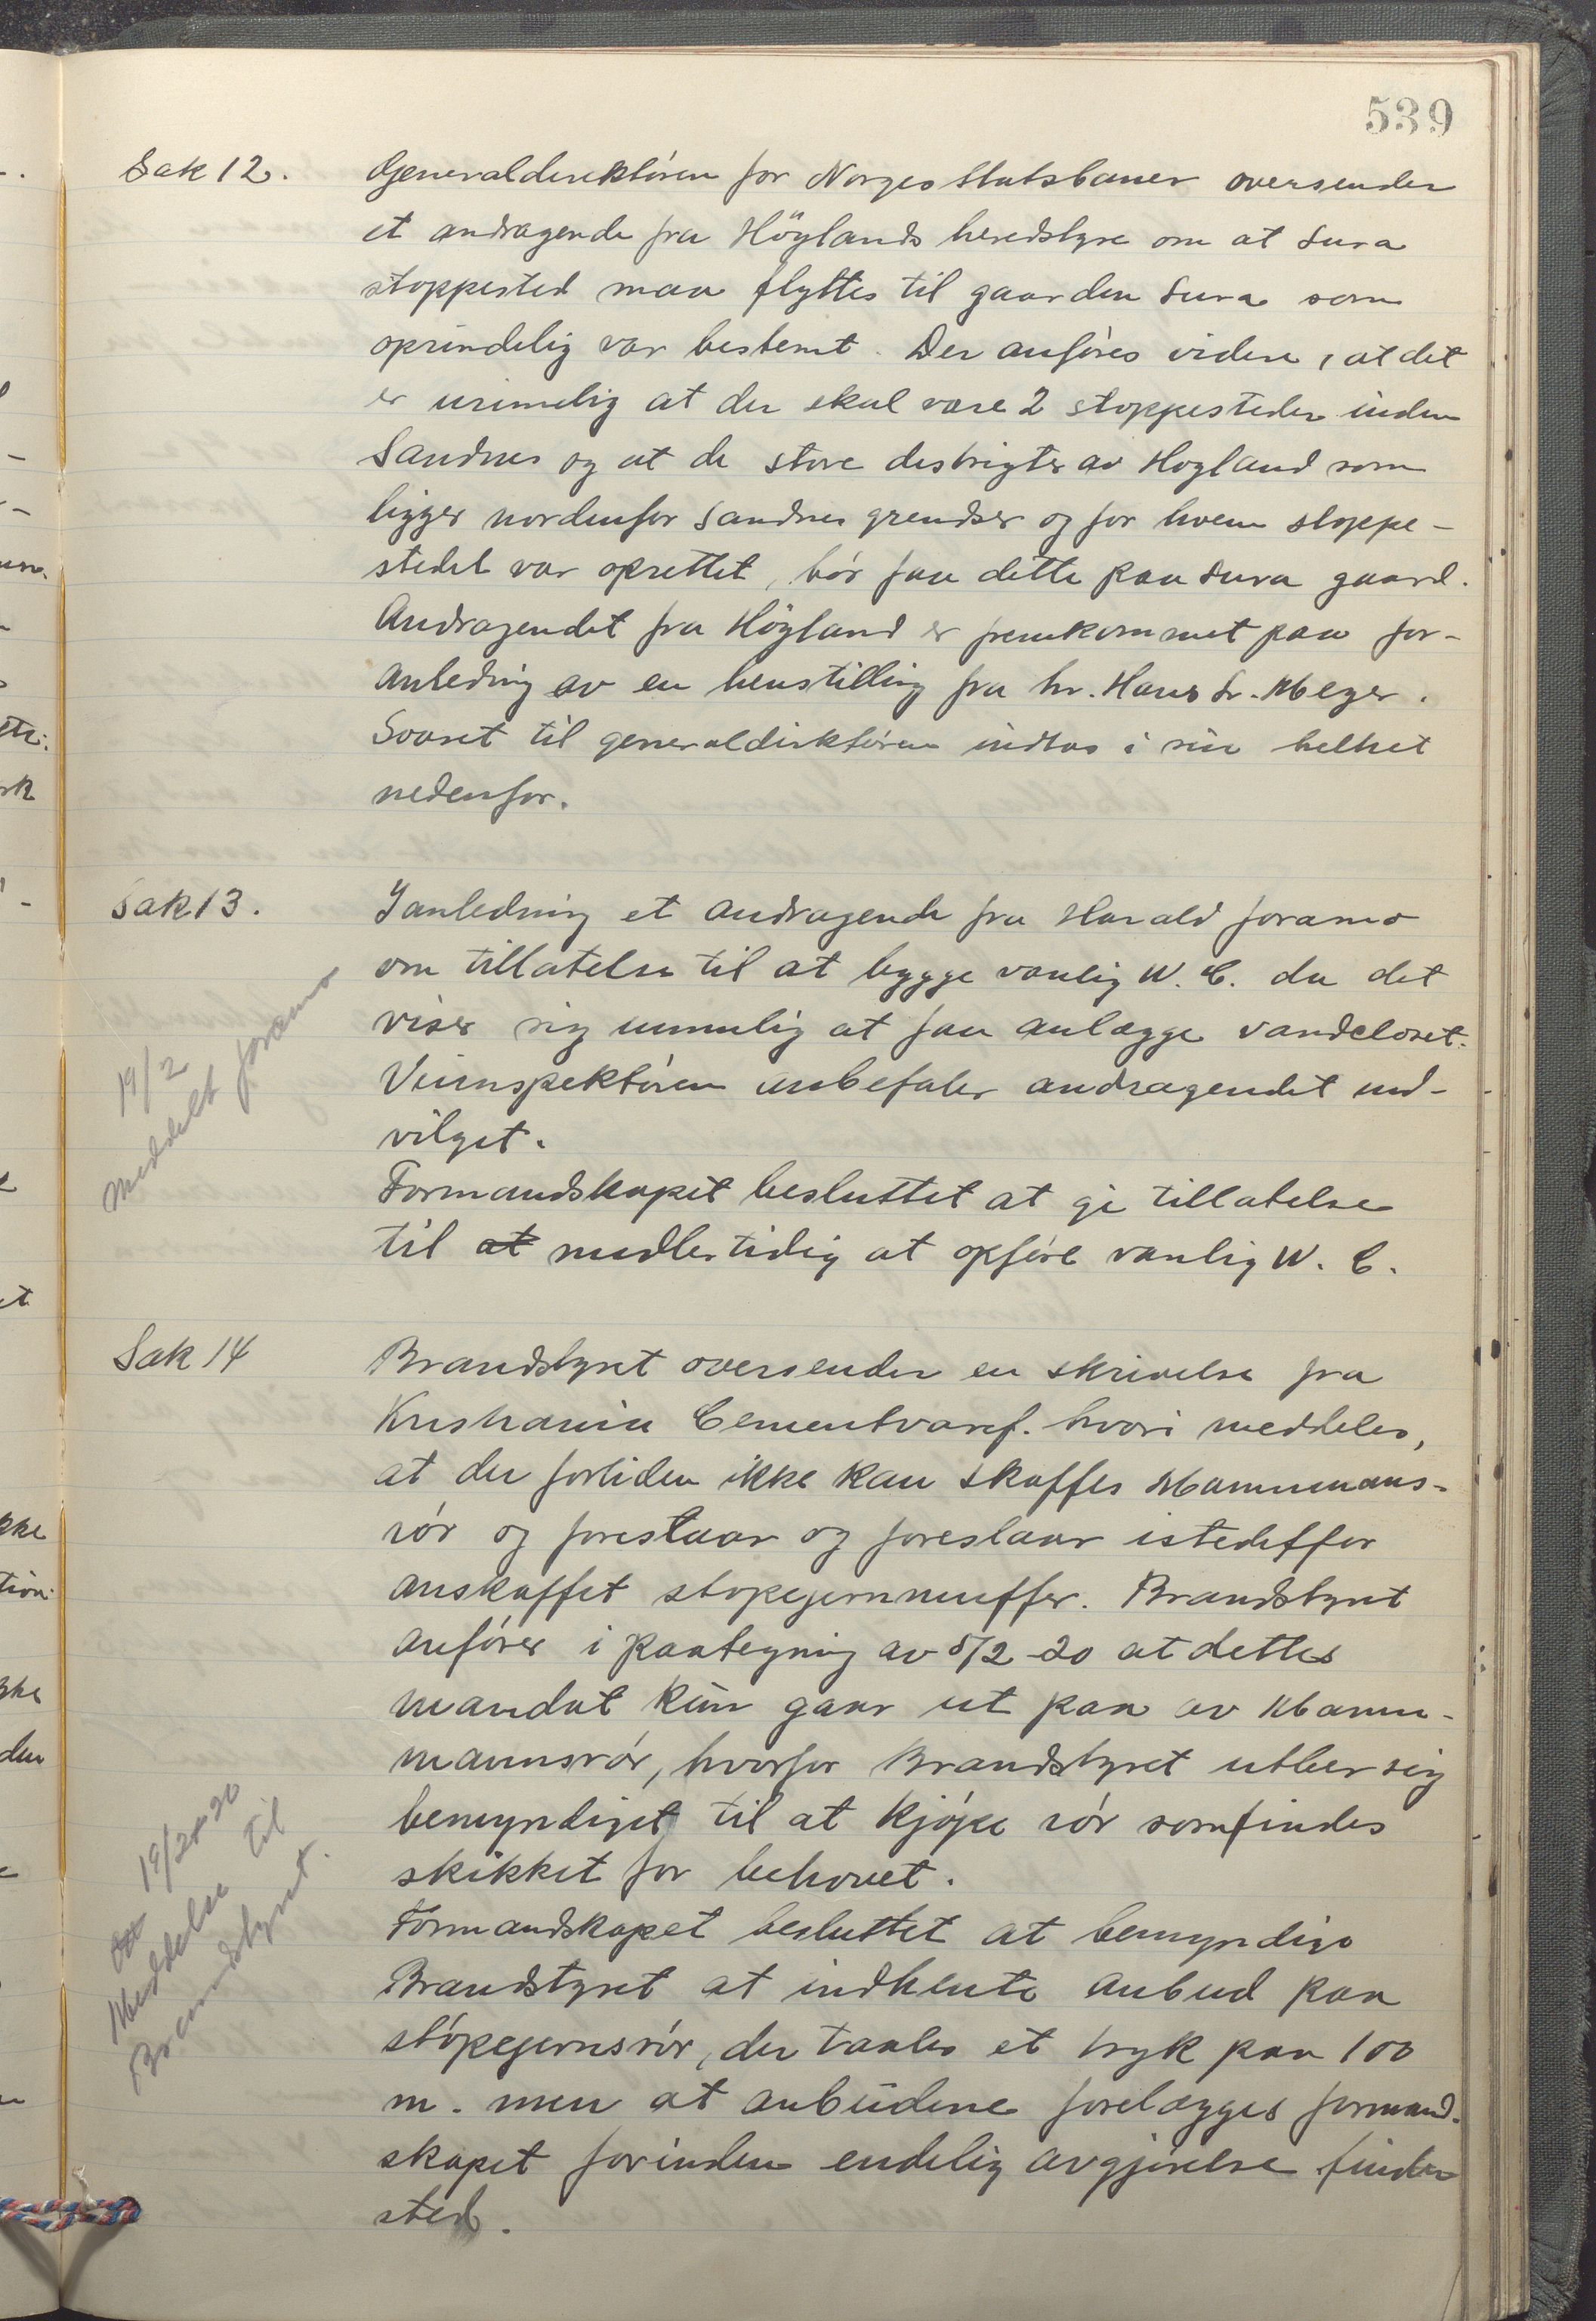 539
Sak 12. Generaldirektören for Norges Statsbaner oversender
et andragende fra Höylands heredstyre om at Lura
stoppested maa flyttes til gaarden Lura som
oprindelig var bestemt. Der anföres videre, at det
er urimelig at der skal være 2 stoppesteder inden
Sandnes og at de store destrigter av Hoyland som
ligger nordenfor Sandnes grendser og for hvem stoppe-
stedet var oprettet, bör faa dette paa Lura gaard.
Andragendet fra Höyland er fremkommet paa for-
anledning av en henstilling fra hr. Hans Meyer.
Svaret til generaldirktören indtas i sin helhet
nedenfor.
Sak 13. I anledning et andragende fra Harald Joramo
om tillatelse til at bygge vanlig W. C. da det
viser sig umulig at faa anlægge vandcloset.
Veiinspektören anbefaler andragendet ind-
vilget.
Formandskapet besluttet at gi tillatelse
til at midlertidig at opföre vanlig W. C.
19/2
Meddelt Joramo
Sak 14 Brandstyret oversender en skrivelse fra
Kristiania Cementvaref. hvori meddeles,
at der fortiden ikke kan skaffes Mammmans-
rör og forestaar og foreslaar istedetfor
anskaffet stöpejernmuffer. Brandstyret
anförer i paategning av 5/2-20 at dettes
mandat kun gaar ut paa av Mann-
mannsrör, hvorfor Brandstyret utber sig
bemyndiget til at kjöpe rör som findes
skikket for behovet.
Formandskapet besluttet at bemyndige
Brandstyret at indhente anbud paa
stöpejernsrör, der taaler et tryk paa 100
m. men at anbudene forelægges formand-
skapet forinden endelig avgjörelse finder
sted.
19/2-20
Meddelelse til
Brandstyret.